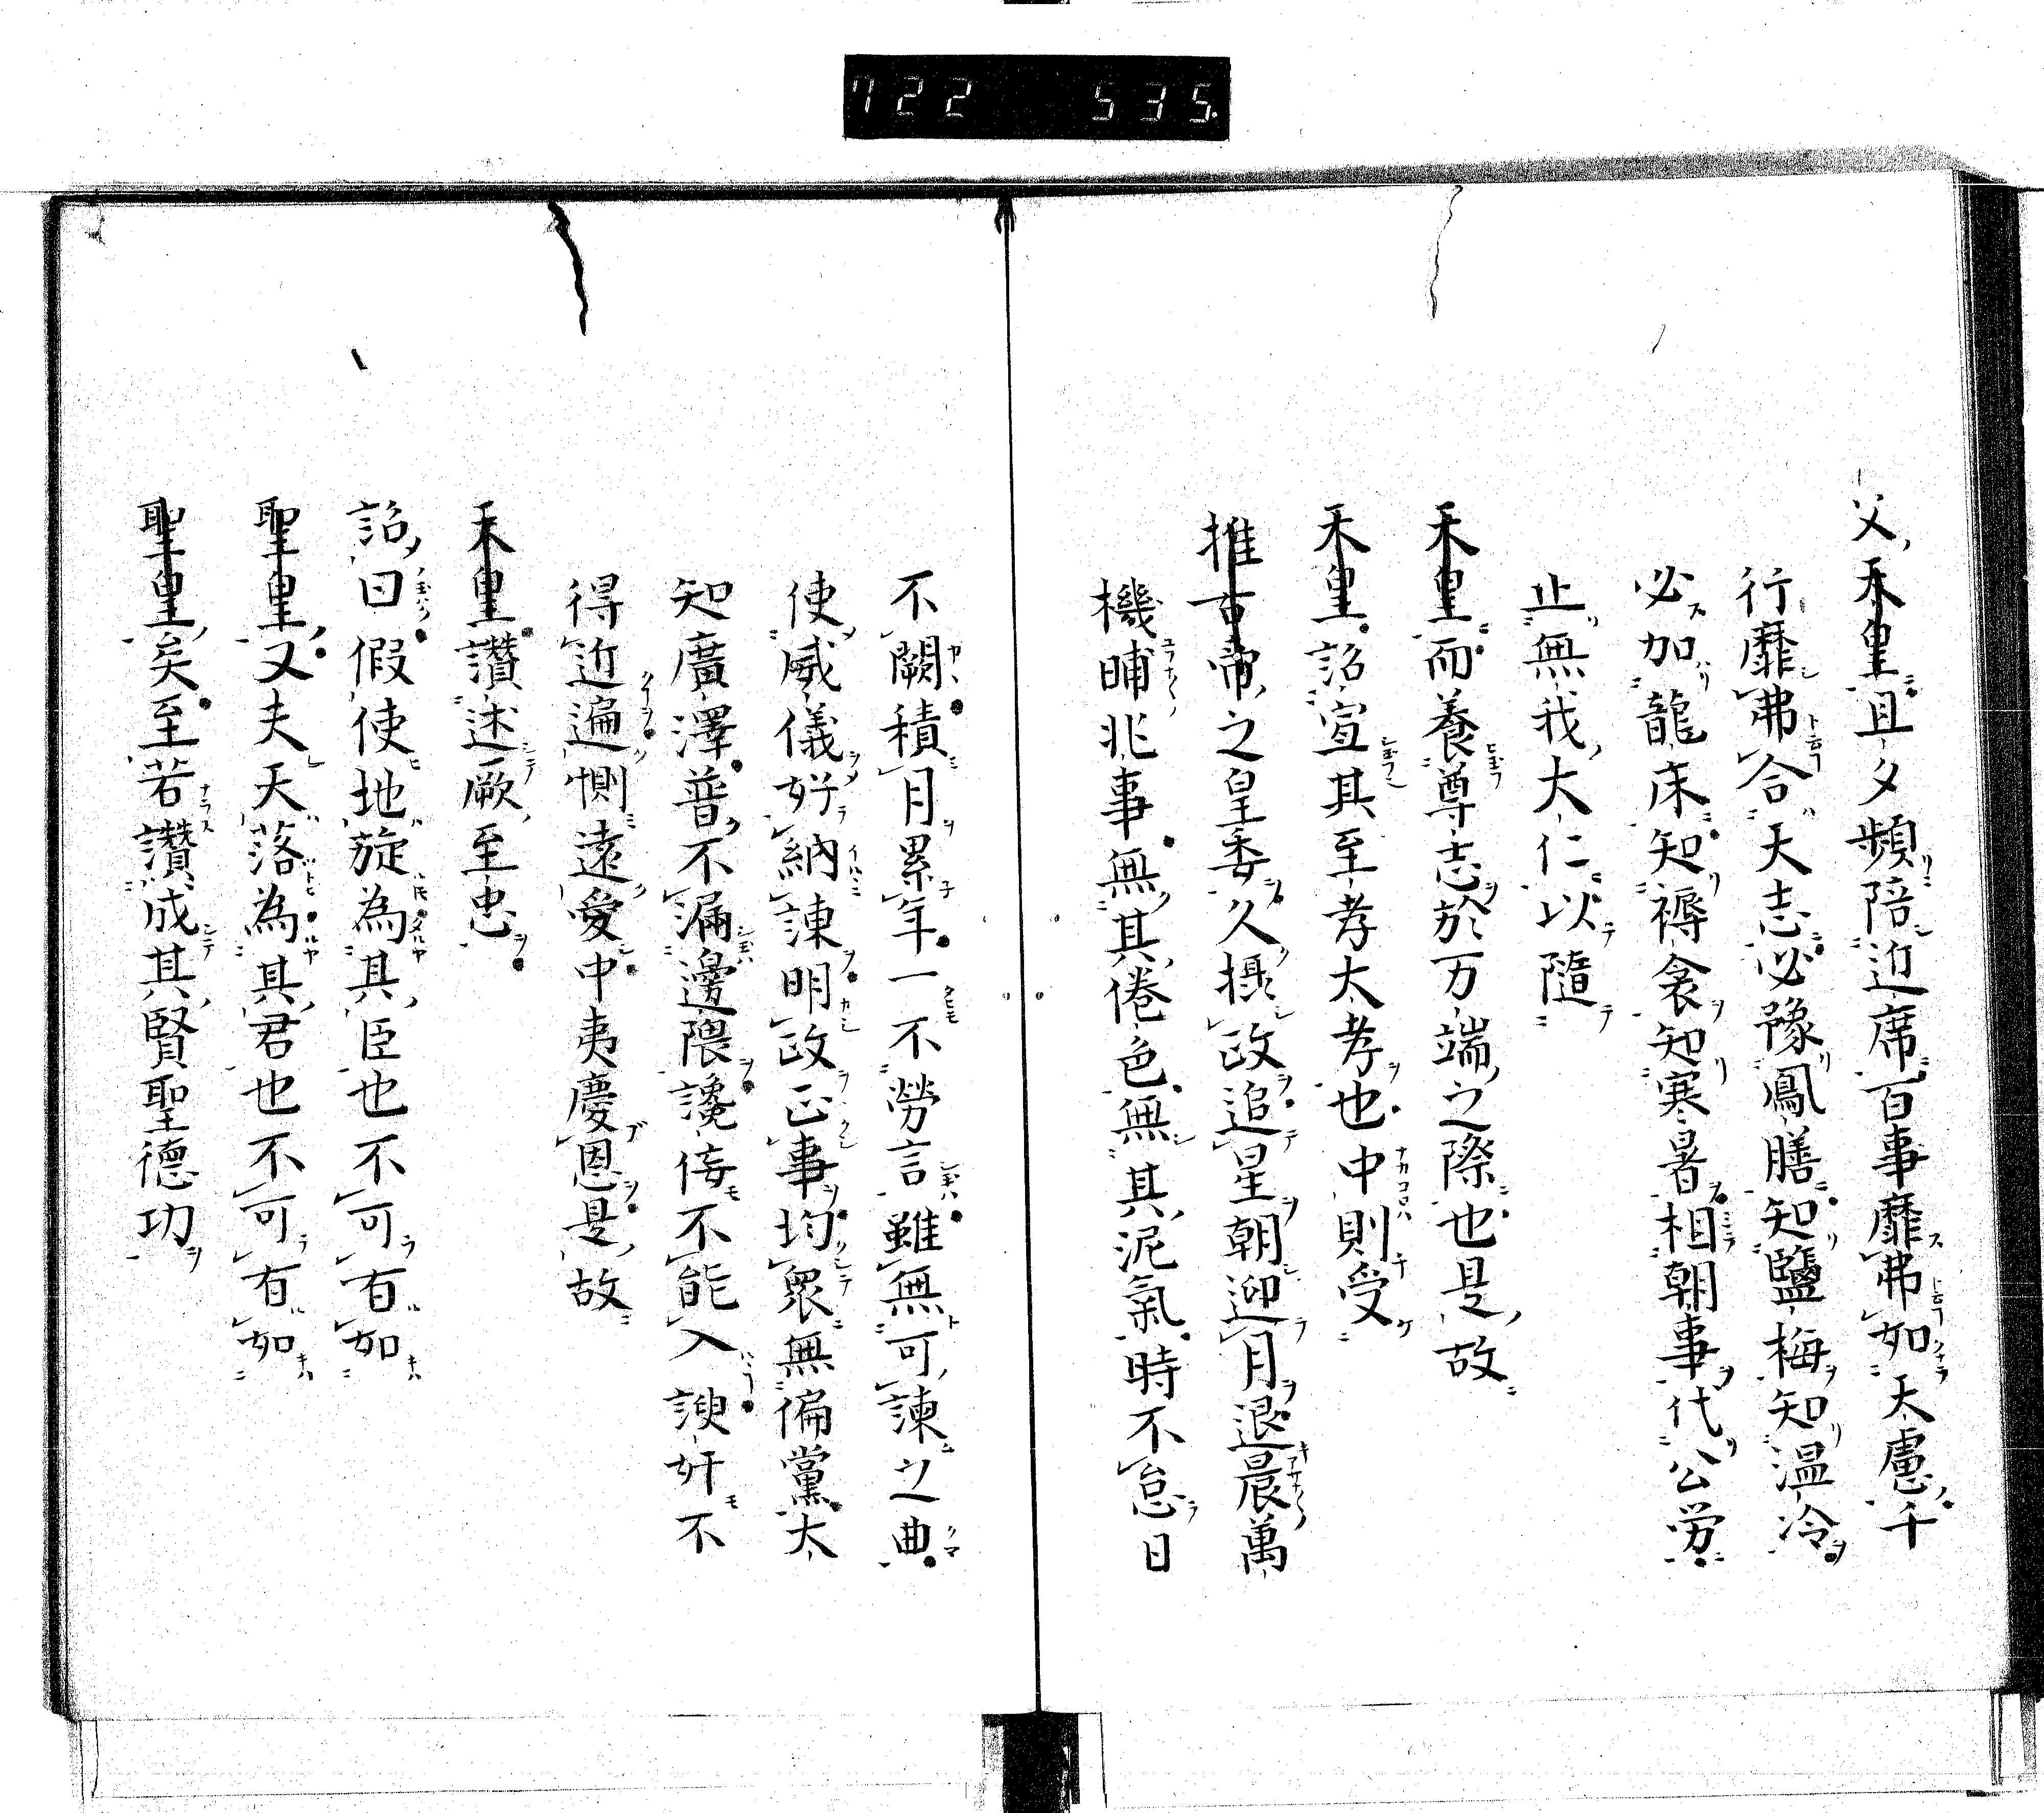 722 535
父天皇且夕頻陪近席百事靡弗如天慮千
行靡弗合天志必豫鳳膳知鹽梅知温冷
必加龍床知褥衾知寒暑相朝事代公労
止無我大仁以隨
天皇而養尊志於万端之際也是故
天皇詔宣其至孝太孝也中則受
推古帝之皇委久摂政追星朝迎月退晨萬
機晡兆事無其倦色無其泥氣時不怠日
不闕積月累年一不勞言雖無可諫之曲
使威儀好納諫明政正事均衆無偏黨太
知廣澤普不漏邊隈讒侫不能入諛奸不
得近遍惻遠愛中夷慶恩是故
天皇讃述厥至忠
詔曰假使地旋為其臣也不可有如
聖皇又夫天落為其君也不可有如
聖皇矣至若讃成其賢聖德功